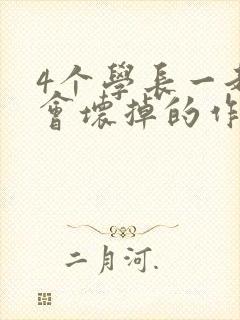 4个學長一
會壞掉的作
二月河.